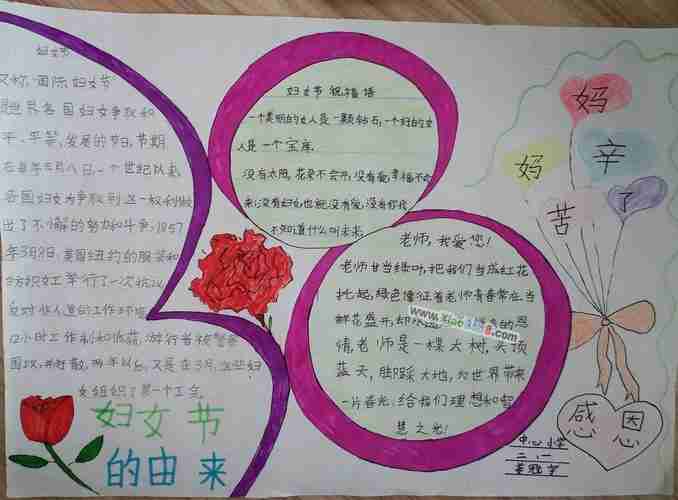 妇女节
又称"国际妇女节"
是世界各国妇女争取和
平、平等、发展的节日,节期
在每年三月八日,一个世纪以来,
各国妇女为争取到这一权利做
出了不懈的努力和斗争,1857
年3月8日,美国纽约的服装和
纺织女工举行了一次抗议,
反对非人道的工作环境
12小时工作制和低薪,游行者被警察
围攻,并打散,两年以后,又是在3月,这些妇
女组织了第一个工会
妇女节
的由来
妇女节祝福语
一个美丽的女人是一颗钻石,一个好的女
人是一个宝库
没有太阳,花朵不会开,没有爱,幸福不会
来,没有妇女,也就没有爱,没有母我
不知道什么叫未来
老师,我爱您!
老师甘当绿叶,把我们当成红花
托起,绿色像征着老师青春常在当
鲜花盛开,却
情老师是一棵大树,头顶
蓝天,脚踩大地,为世界带来
一片春光,给我们理想和智
慧之光!
www.xiao
.com
妈
妈
辛
苦
了
感恩
中心小学
二、一